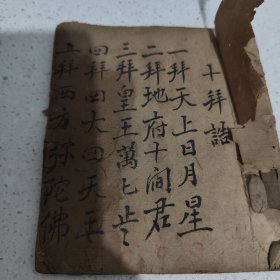 十拜誥
一拜天上日月星
二拜地府十间君
三拜皇王萬七歩
四拜四大四天王
五拜西方弥陀佛